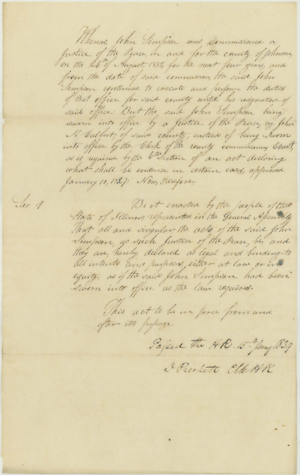 Whereas John Simpson was commissioned a
Justice of the Peace in and for the county of Johnson
on the of August 1835 for the next four years and
from the date of said commission the said John
Simpson continued to execute and perform the duties
of that office for said county until his resignation of
said office. But the said John Simpson being
sworn into office by a Justice of the Peace, by John
of said county, instead of being sworn
into office by the Clerk of the county commissioners Court,
as is required by the Section of an act declaring
what shall be evidence in certain cases, approved
January 10, 1827 Now therefore
Sec 1 Be it enacted by the people of the
State of Illinois represented in the General Assembly
That all and singular the acts of the said John
Simpson, as such Justice of the Peace, be and
they are, hereby declared as legal and binding to
all intents and purposes, either at law or in
equity, as if the said John Simpson had been
sworn into office as the law required.
This act to be in force from and
after its passage
Passed the H R 15th Jany 1839
J Prickett Clk H R